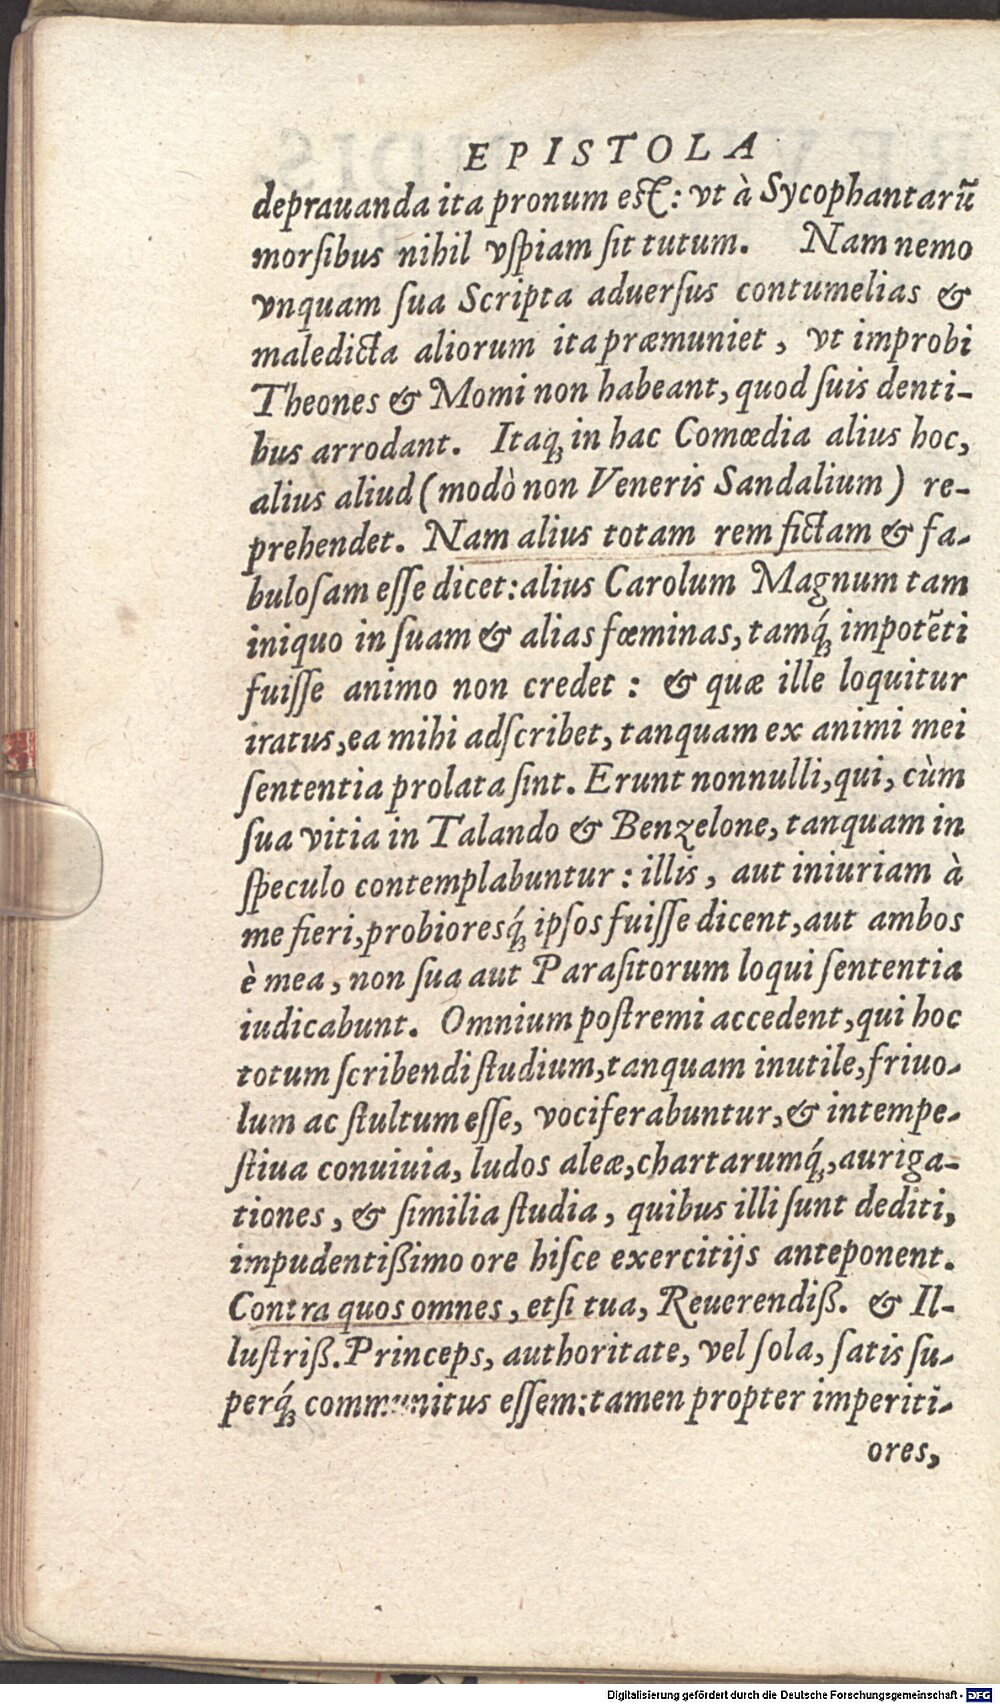 EPISTOLA
deprauanda ita pronum est: vt à Sycophantarū
morſibus nihil vſpiam ſit tutum. Nam nemo
vnquam ſua Scripta aduerſus contumelias &
maledicta aliorum ita præmuniet, vt improbi
Theones & Momi non habeant, quod ſuis denti-
bus arrodant. Itaq; in hac Comœdia alius hoc,
alius aliud (modò non Veneris Sandalium) re-
prehendet. Nam alius totam rem fictam & fa-
buloſam eſſe dicet: alius Carolum Magnum tam
iniquo in ſuam & alias fœminas, tamq́; impotēti
fuiſſe animo non credet: & quæ ille loquitur
iratus, ea mihi adſcribet, tanquam ex animi mei
ſententia prolata ſint. Erunt nonnulli, qui, cùm
ſua vitia in Talando & Benzelone, tanquam in
ſpeculo contemplabuntur: illis, aut iniuriam à
me fieri, probioresq́; ipſos fuiſſe dicent, aut ambos
è mea, non ſua aut Paraſitorum loqui ſententia
iudicabunt. Omnium poſtremi accedent, qui hoc
totum ſcribendi ſtudium, tanquam inutile, friuo-
lum ac ſtultum eſſe, vociferabuntur, & intempe-
ſtiua conuiuia, ludos aleæ, chartarumq́;, auriga-
tiones, & ſimilia ſtudia, quibus illi ſunt dediti,
impudentißimo ore hiſce exercitijs anteponent.
Contra quos omnes, etſi tua, Reuerendiß. & Il-
luſtriß. Princeps, authoritate, vel ſola, ſatis ſu-
perq́; communitus eſſem: tamen propter imperiti-
ores,
Digitalisierung gefördert durch die Deutsche Forschungsgemeinschaft - DFG